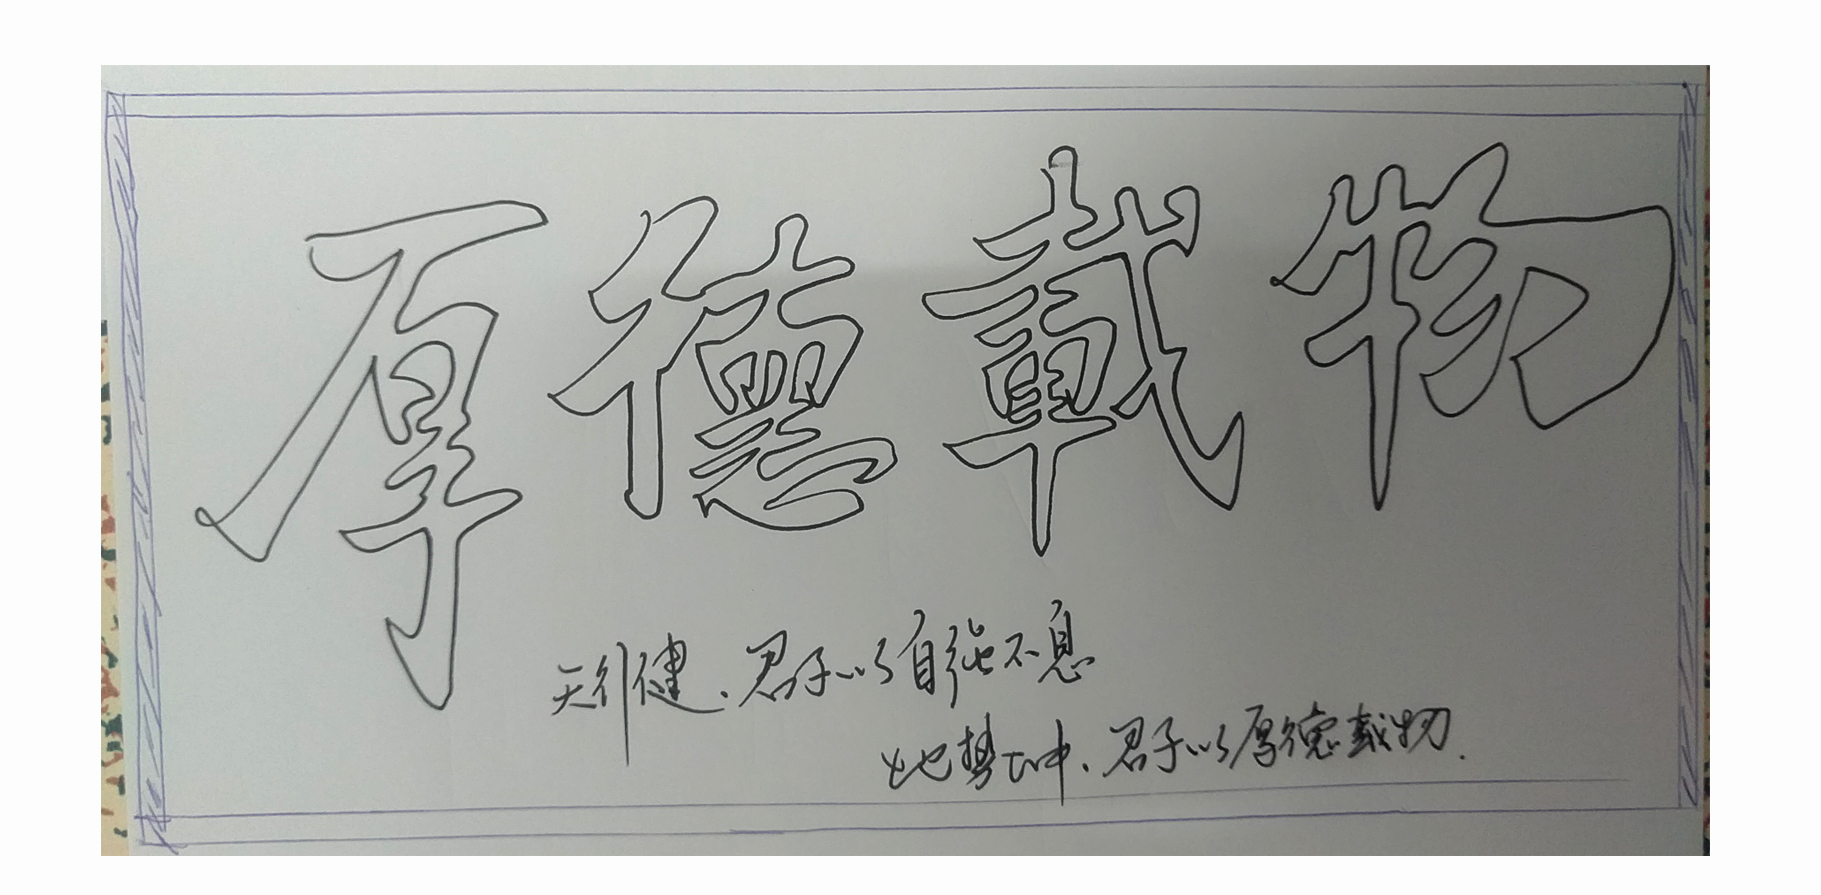 厚德載物
天行健、君子以自强不息
地势坤、君子以厚德载物.